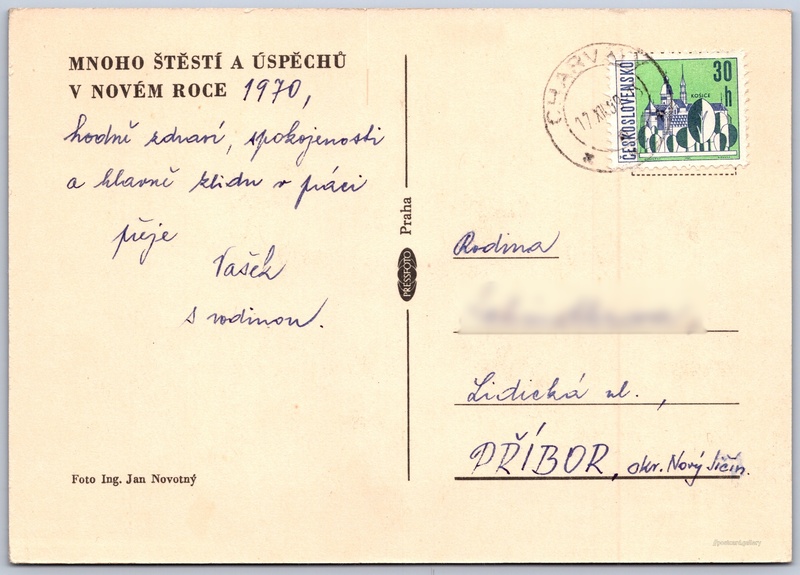 MNOHO ŠTĚSTÍ A ÚSPĚCHŮ
V NOVÉM ROCE 1970,
hodně zdraví, spokojenosti
a hlavně klidu v práci
přeje
Vašek
s rodinou.
Foto Ing. Jan Novotný
Praha
PRESSFOTO
ČESKOSLOVENSKO
30
h
KOŠICE
17.XII.
Rodina
Lidická ul.,
PŘÍBOR, okr. Nový Jičín.